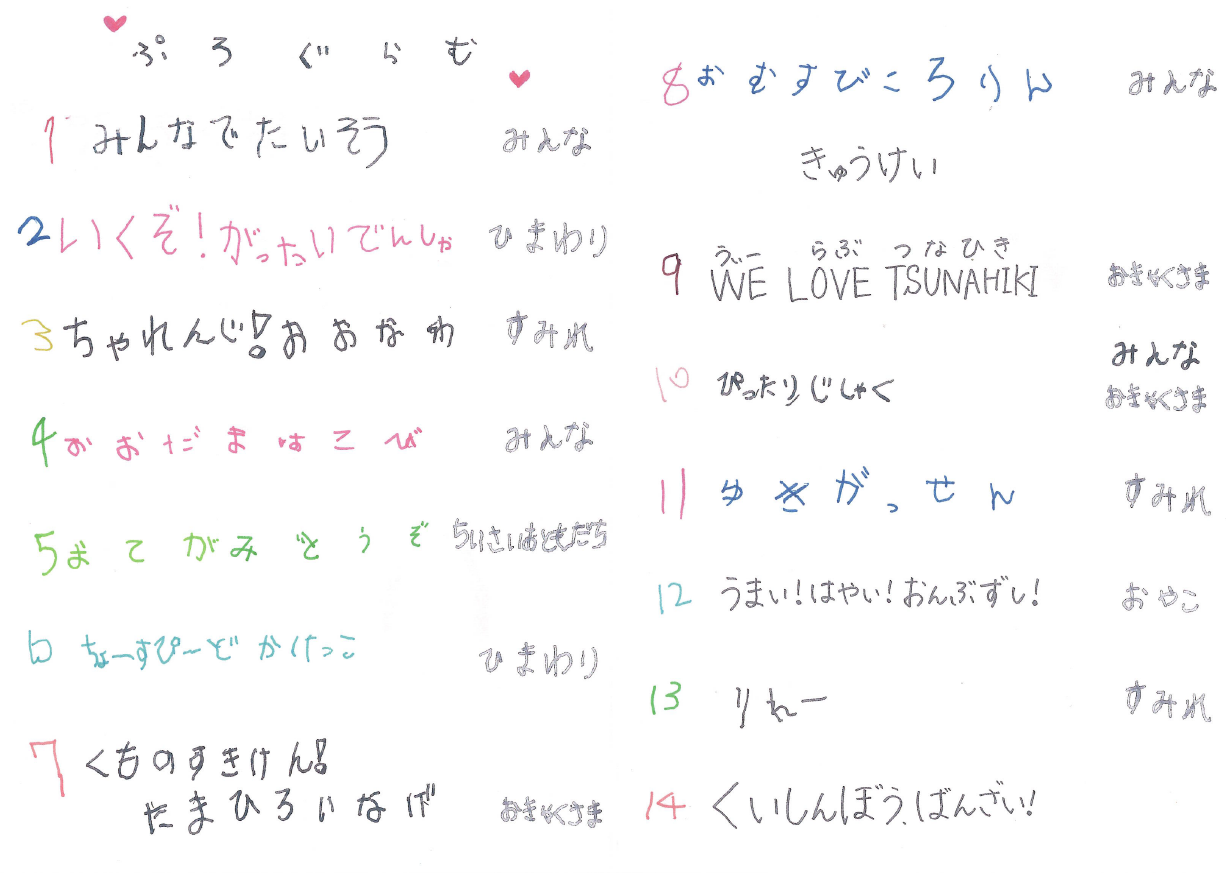 ぷろぐらむ
1 みんなでたいそう みんな
2 いくぞ!がったいでんしゃ ひまわり
3 ちゃれんじ!おおなわ すみれ
4 おおだまはこび みんな
5 おてがみどうぞ ちいさいおともだち
6 ちょーすぴーどかけっこ ひまわり
7 くものすきけん!
たまひろいなげ おきゃくさま
8 おむすびころりん みんな
きゅうけい
うぃー らぶ つなひき
9 WE LOVE TSUNAHIKI おきゃくさま
みんな
10 ぴったりじしゃく おきゃくさま
11 ゆきがっせん すみれ
12 うまい!はやい!おんぶずし! おやこ
13 りれー すみれ
14 くいしんぼう、ばんざい!